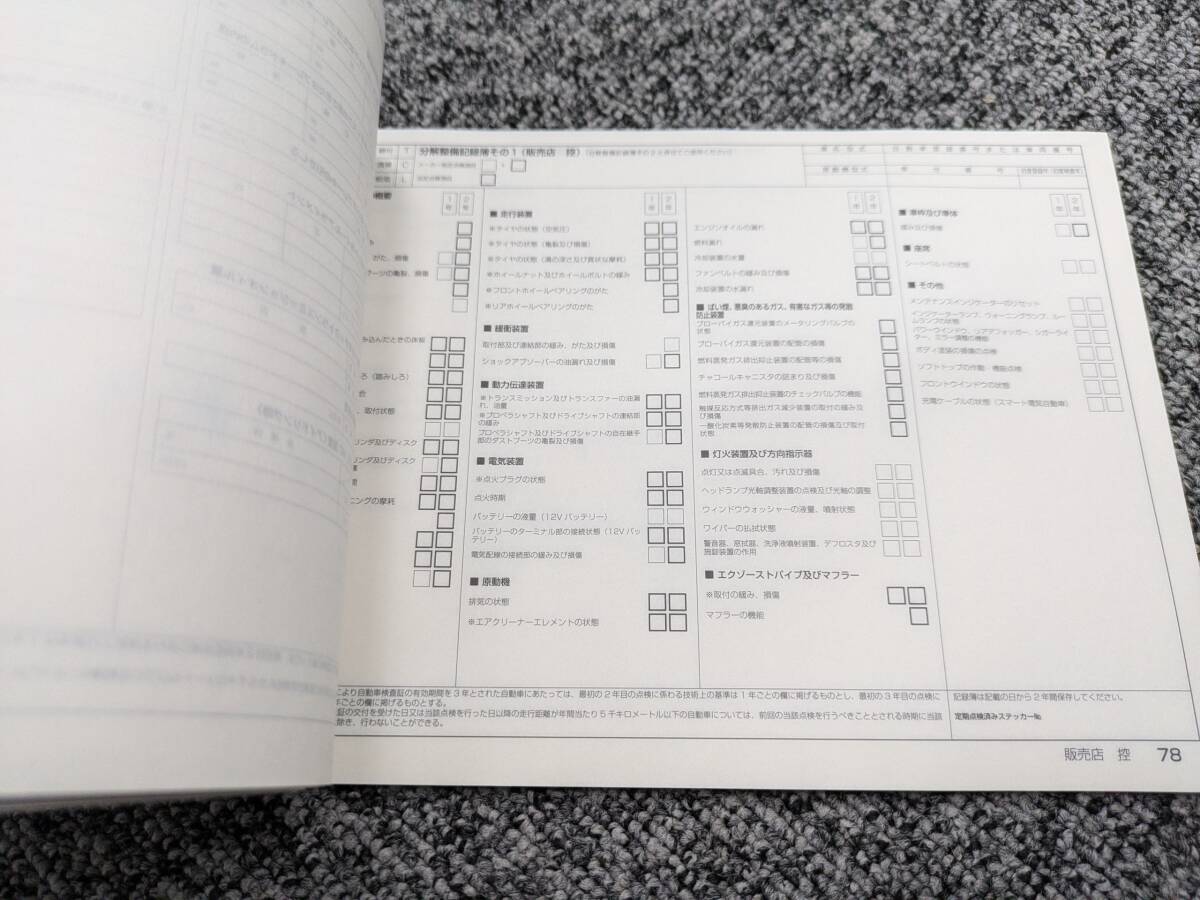 分解整備記録簿その1(販売店 控)(分解整備記録簿その2と併せてご使用ください)
車名型式
原動機型式
の概要
がた、損傷
ーツの亀裂、損傷
み込んだときの床板
ろ(踏みしろ)
合
、取付状態
リンダ及びディスク
リンダ及びディスク
ニングの摩耗
1年
2年
■ 走行装置
※タイヤの状態(空気圧)
※タイヤの状態(亀裂及び損傷)
※タイヤの状態(溝の深さ及び異状な摩耗)
※ホイールナット及びホイールボルトの緩み
※フロントホイールベアリングのがた
※リアホイールベアリングのがた
■ 緩衝装置
取付部及び連結部の緩み、がた及び損傷
ショックアブソーバーの油漏れ及び損傷
■ 動力伝達装置
※トランスミッション及びトランスファーの油漏
れ、油量
※プロペラシャフト及びドライブシャフトの連結部
の緩み
プロペラシャフト及びドライブシャフトの自在継手
部のダストブーツの亀裂及び損傷
■ 電気装置
※点火プラグの状態
点火時期
バッテリーの液量(12Vバッテリー)
バッテリーのターミナル部の接続状態(12Vバッ
テリー)
電気配線の接続部の緩み及び損傷
■ 原動機
排気の状態
※エアクリーナーエレメントの状態
1年
2年
エンジンオイルの漏れ
燃料漏れ
冷却装置の水量
ファンベルトの緩み及び損傷
冷却装置の水漏れ
■ ばい煙、悪臭のあるガス、有害なガス等の発散
防止装置
ブローバイガス還元装置のメータリングバルブの
状態
ブローバイガス還元装置の配管の損傷
燃料蒸発ガス排出抑止装置の配管等の損傷
チャコールキャニスタの詰まり及び損傷
燃料蒸発ガス排出抑止装置のチェックバルブの機能
触媒反応方式等排出ガス減少装置の取付の緩み及
び損傷
一酸化炭素等発散防止装置の配管の損傷及び取付
状態
■ 灯火装置及び方向指示器
点灯又は点滅具合、汚れ及び損傷
ヘッドランプ光軸調整装置の点検及び光軸の調整
ウィンドウウォッシャーの液量、噴射状態
ワイパーの払拭状態
警音器、窓拭器、洗浄液噴射装置、デフロスタ及び
施錠装置の作用
■ エクゾーストパイプ及びマフラー
※取付の緩み、損傷
マフラーの機能
1年
2年
■ 車枠及び車体
緩み及び損傷
■ 座席
シートベルトの状態
■ その他
メンテナンスインジケーターのリセット
インジケーターランプ、ウォーニングランプ、ルー
ムランプの状態
パワーウインドウ、リアデフォッガー、シガーライ
ター、ミラー調整の機能
ボディ塗装の損傷の点検
ソフトトップの作動・機能点検
フロントウインドウの状態
充電ケーブルの状態(スマート電気自動車)
により自動車検査証の有効期間を3年とされた自動車にあたっては、最初の2年目の点検に係わる技術上の基準は1年ごとの欄に掲げるものとし、最初の3年目の点検に
ごとの欄に掲げるものとする。
証の交付を受けた日又は当該点検を行った日以降の走行距離が年間当たり5千キロメートル以下の自動車については、前回の当該点検を行うべきこととされる時期に当該
除き、行わないことができる。
記録簿は記載の日から2年間保存してください。
定期点検済みステッカー№
販売店 控 78